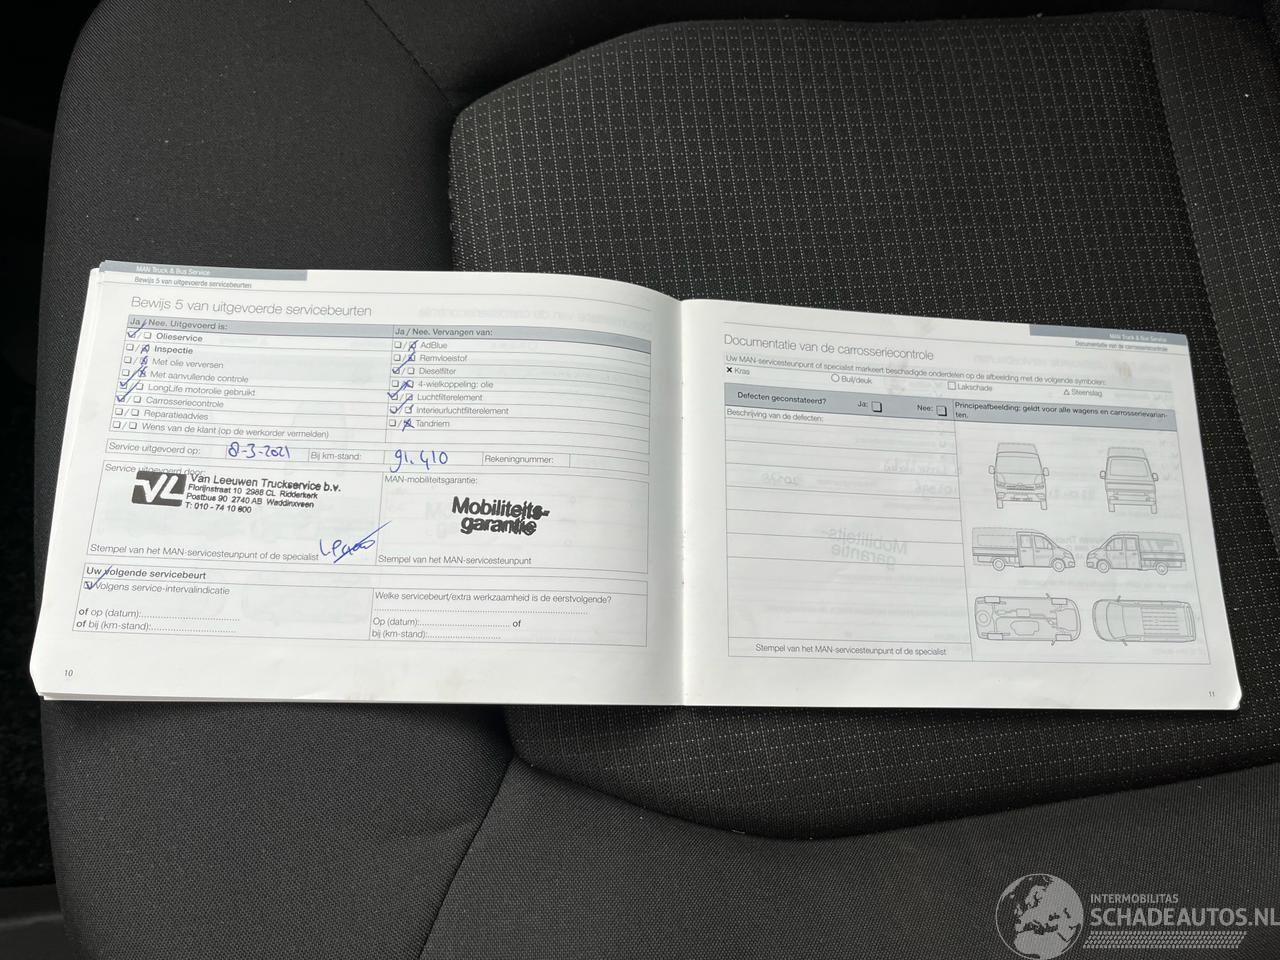 MAN Truck & Bus Service
Bewijs 5 van uitgevoerde servicebeurten
Bewijs 5 van uitgevoerde servicebeurten
Ja / Nee. Uitgevoerd is:
Olieservice
Inspectie
Met olie verversen
Met aanvullende controle
LongLife motorolie gebruikt
Carrosseriecontrole
Reparatieadvies
Wens van de klant (op de werkorder vermelden)
Ja / Nee. Vervangen van:
AdBlue
Remvloeistof
Dieselfilter
4-wielkoppeling: olie
Luchtfilterelement
Interieurluchtfilterelement
Tandriem
Service uitgevoerd op: 8-3-2021 Bij km-stand: 91.410 Rekeningnummer:
Service uitgevoerd door:
VL Van Leeuwen Truckservice b.v.
Florijnstraat 10 2988 CL Ridderkerk
Postbus 90 2740 AB Waddinxveen
T: 010 - 74 10 800
Stempel van het MAN-servicesteunpunt of de specialist
MAN-mobiliteitsgarantie:
Mobiliteits-
garantie
Stempel van het MAN-servicesteunpunt
Uw volgende servicebeurt
Volgens service-intervalindicatie
of op (datum):
of bij (km-stand):
Welke servicebeurt/extra werkzaamheid is de eerstvolgende?
Op (datum): of
bij (km-stand):
10
MAN Truck & Bus Service
Documentatie van de carrosseriecontrole
Documentatie van de carrosseriecontrole
Uw MAN-servicesteunpunt of specialist markeert beschadigde onderdelen op de afbeelding met de volgende symbolen:
× Kras ○ Buil/deuk □ Lakschade △ Steenslag
Defecten geconstateerd? Ja: Nee:
Beschrijving van de defecten:
Principeafbeelding: geldt voor alle wagens en carrosserievarian-
ten.
Stempel van het MAN-servicesteunpunt of de specialist
11
INTERMOBILITAS
SCHADEAUTOS.NL